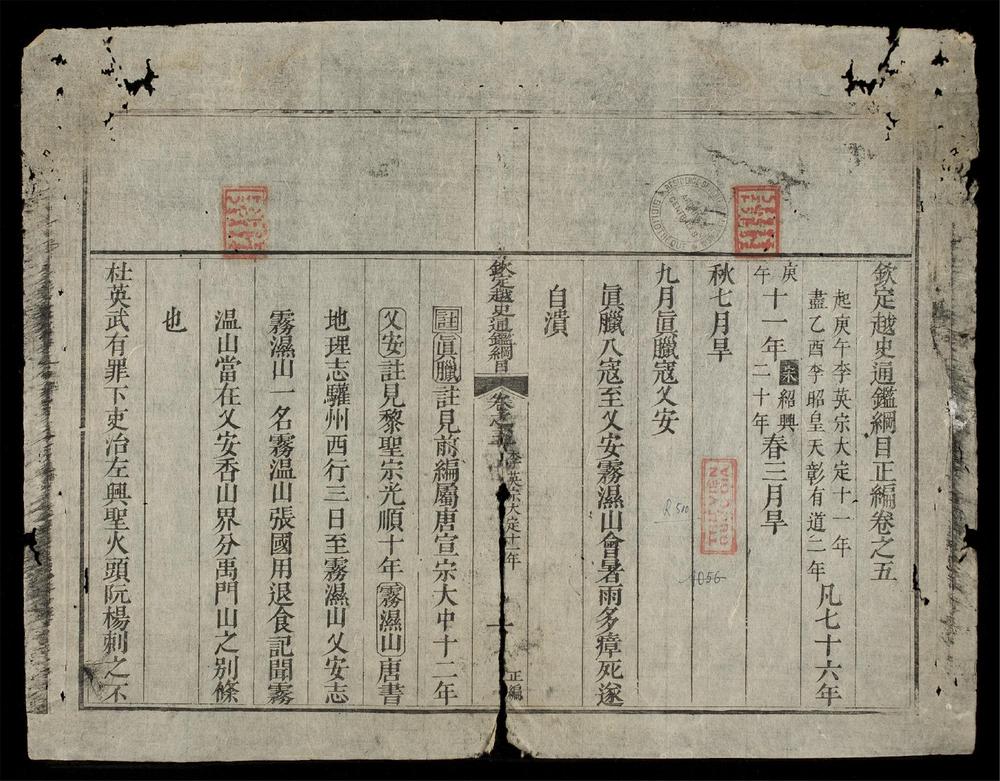 欽定越史通鑑綱目正編卷之五
起庚午李英宗大定十一年
盡乙酉李昭皇天彰有道二年
凡七十六年
庚午
十一年
宋紹興二十年
春三月旱
秋七月旱
九月眞臘寇乂安
眞臘入寇至乂安霧濕山會暑雨多瘴死遂
自潰
欽定越史通鑑綱目
卷之五
李英宗大定十一年
一
正編
註眞臘註見前編屬唐宣宗大中十二年
乂安註見黎聖宗光順十年霧濕山唐書
地理志驩州西行三日至霧濕山乂安志
霧濕山一名霧温山張國用退食記聞霧
温山當在乂安香山界分禹門山之别條
也
杜英武有罪下吏治左興聖火頭阮楊刺之不
R 510
1056